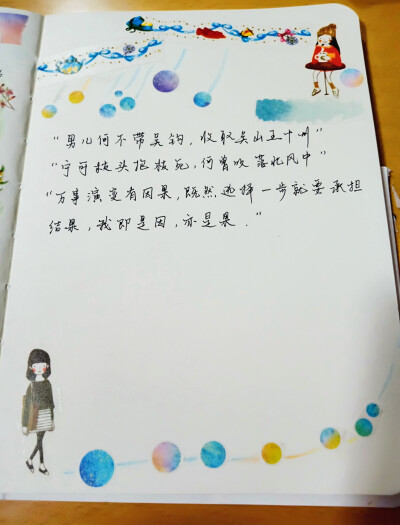 "男儿何不带吴钩,收取关山五十州"
"宁可枝头抱枝死,何曾吹落北风中"
"万事演变有因果,既然选择一步就要承担
结果,我即是因,亦是果."